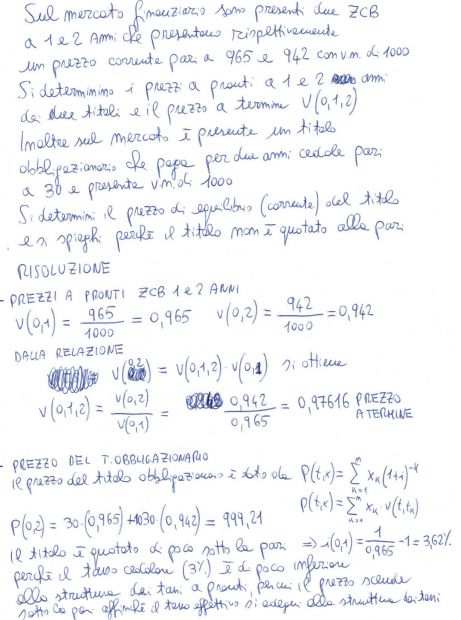 Sul mercato finanziario sono presenti due ZCB
a 1 e 2 Anni che presentano rispettivamente
un prezzo corrente pari a 965 e 942 con v.n. di 1000
Si determinino i prezzi a pronti a 1 e 2 anni
dei due titoli e il prezzo a termine V(0,1,2)
Inoltre sul mercato è presente un titolo
obbligazionario che paga per due anni cedole pari
a 30 e presenta v.n. di 1000
Si determini il prezzo di equilibrio (corrente) del titolo
e si spieghi perché il titolo non è quotato alla pari
RISOLUZIONE
- PREZZI A PRONTI ZCB 1 e 2 ANNI
V(0,1) = 965/1000 = 0,965 V(0,2) = 942/1000 = 0,942
DALLA RELAZIONE
V(0,2) = V(0,1,2) · V(0,1) si ottiene
V(0,1,2) = V(0,2)/V(0,1) = 0,942/0,965 = 0,97616 PREZZO A TERMINE
- PREZZO DEL T. OBBLIGAZIONARIO
il prezzo del titolo obbligazionario è dato da P(t,x) = Σ xk (1+i)^-k
P(t,x) = Σ xk · V(t,tk)
P(0,2) = 30·(0,965) + 1030·(0,942) = 999,21
il titolo è quotato di poco sotto la pari ⇒ i(0,1) = 1/0,965 - 1 = 3,62%
perché il tasso cedolare (3%) è di poco inferiore
alla struttura dei tassi a pronti, il prezzo scende
sotto la pari affinché il tasso effettivo si adegui alla struttura dei tassi